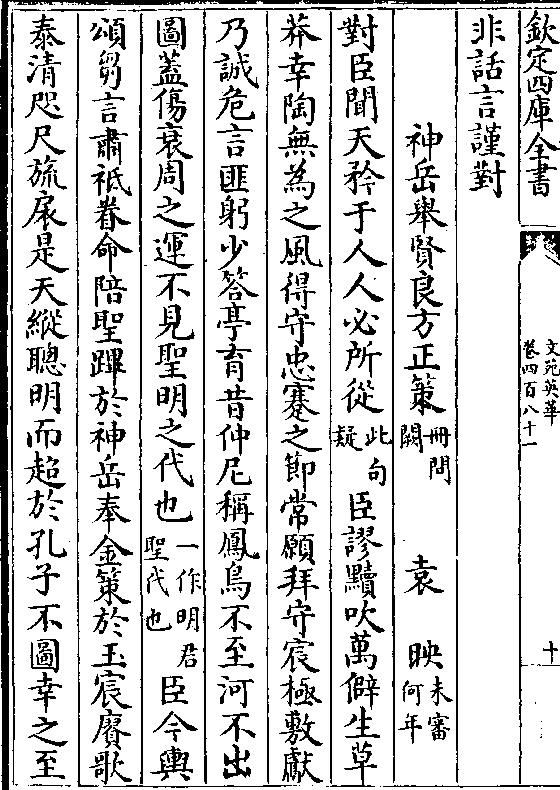 欽定四庫全書
文苑英華
卷四百八十一
十
非話言謹對
神岳舉賢良方正策冊問闕 袁映未審何年
對臣聞天矜于人人必所從此句疑臣謬黷吹萬僻生草
莽幸陶無為之風得守忠蹇之節常願拜守宸極敷獻
乃誠危言匪躬少答亭育昔仲尼稱鳳鳥不至河不出
圖蓋傷衰周之運不見聖明之代也一作明君聖代也臣今輿
頌芻言肅袛眷命陪聖蹕於神岳奉金策於玉宸賡歌
泰清咫尺旒扆是天縱聰明而超於孔子不圖幸之至